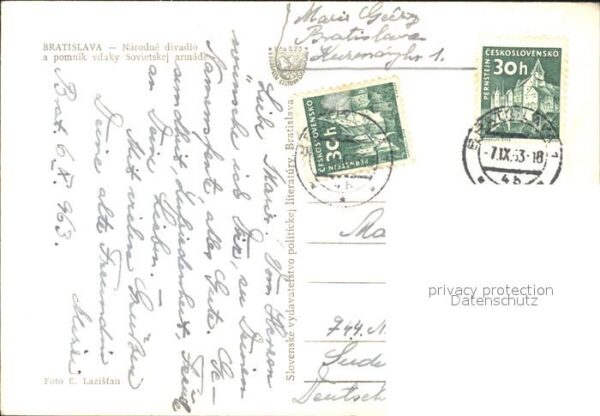 BRATISLAVA — Národné divadlo
a pomník vďaky Sovietskej armáde
Liebe Marie! Vom Herzen
wünsche ich Dir, zu Deinem
Namensfeste, alles Gute. Ge-
sundheit, Zufriedenheit, Freude
an Deine Lieben. —
Mit vielen Grüßen
Deine alte Freundin
Marie
Brat. 6. IX. 963.
Foto E. Lazišťan
Slovenské vydavateľstvo politickej literatúry, Bratislava
Marie
Bratislava
1.
ČESKOSLOVENSKO
30h
PERNŠTEJN
ČESKOSLOVENSKO
30h
PERNŠTEJN
BRATISLAVA 1
-7.IX.63-18
4b
4b
Ma
744 
Sude
Deutsch
privacy protection
Datenschutz